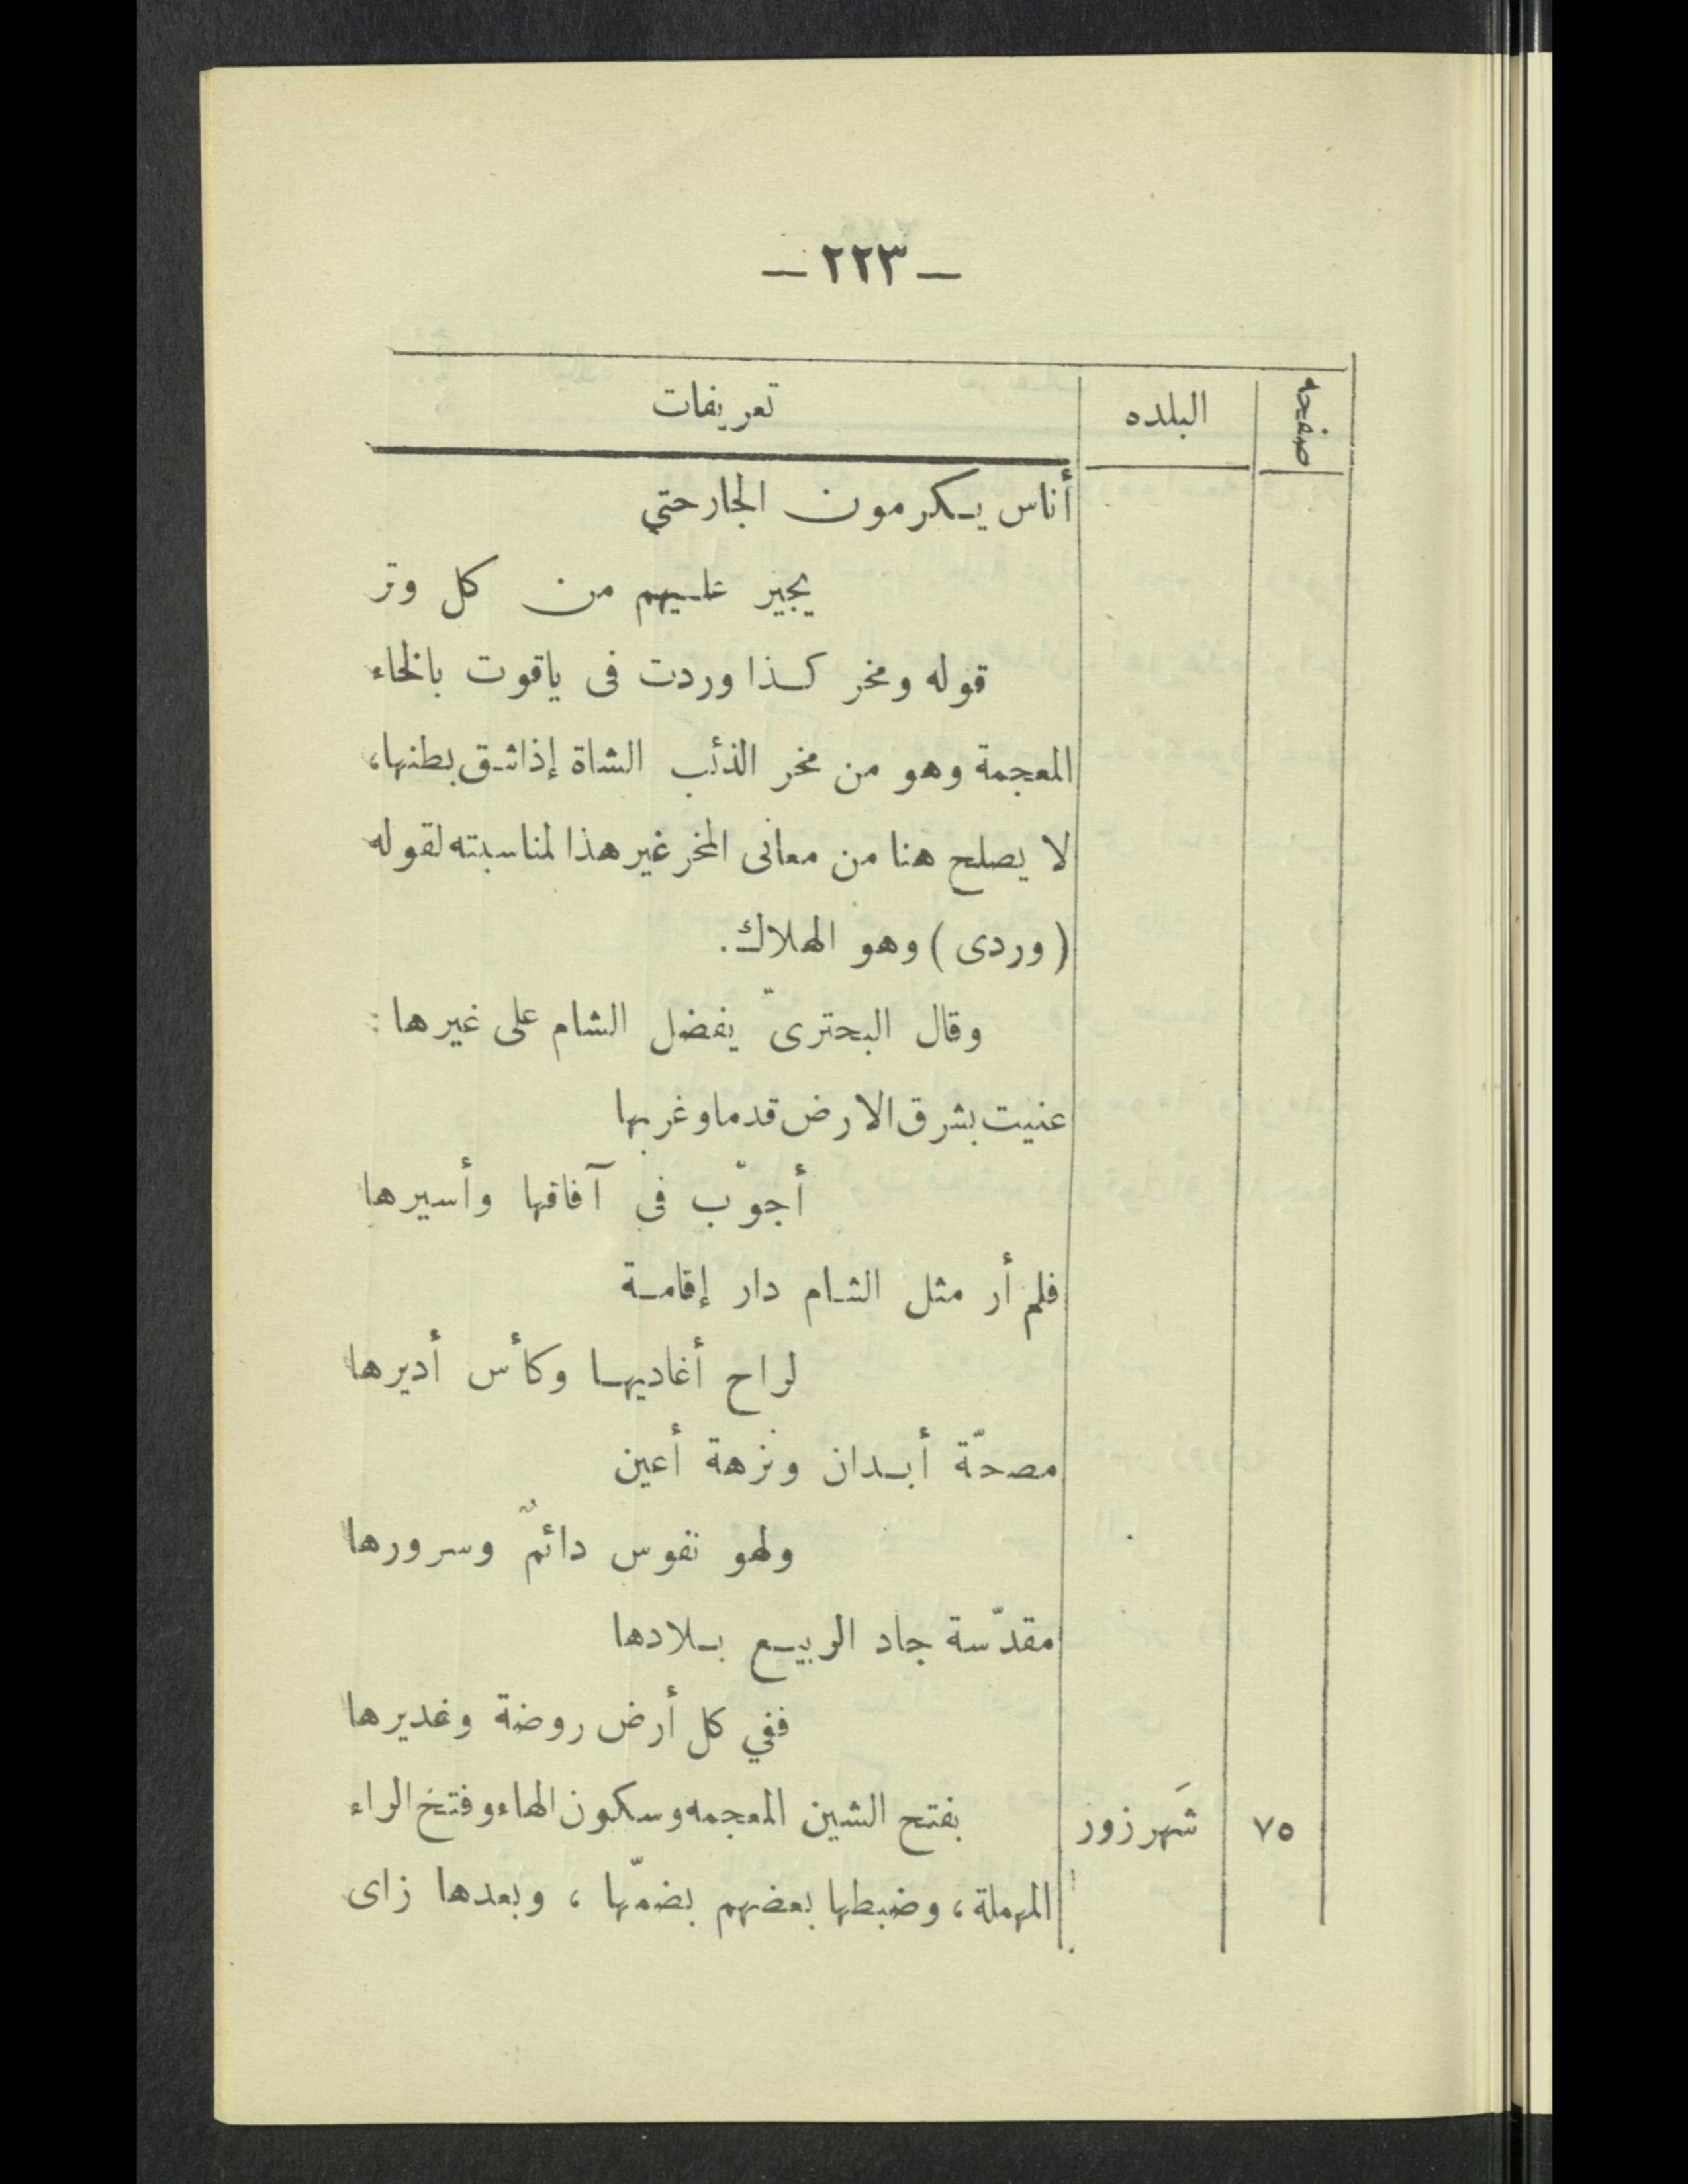 — ٢٢٣ —
صفحه البلده تعريفات
أناس يكرمون الجار حتي
يجير عليهم من كل وتر
قوله ومخر كذا وردت فى ياقوت بالخاء
المعجمة وهو من مخر الذئب الشاة إذا شق بطنها،
لا يصلح هنا من معانى المخر غير هذا لمناسبته لقوله
( وردى ) وهو الهلاك.
وقال البحترىّ يفضل الشام على غيرها :
عنيت بشرق الارض قدما وغربها
أجوّب في آفاقها وأسيرها
فلم أر مثل الشام دار إقامة
لراح أغاديها وكأس أديرها
مصحّة أبدان ونزهة أعين
ولهو نفوس دائمٌ وسرورها
مقدّسة جاد الربيع بلادها
ففي كل أرض روضة وغديرها
٧٥ شَهر زور بفتح الشين المعجمه وسكون الهاء وفتخ الراء
المهملة، وضبطها بعضهم بضمّها ، وبعدها زاى